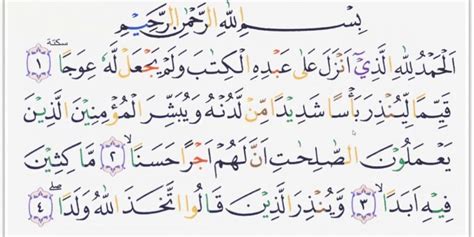 بِسْمِ اللّٰهِ الرَّحْمٰنِ الرَّحِيْمِ
اَلْحَمْدُ لِلّٰهِ الَّذِيْٓ اَنْزَلَ عَلٰى عَبْدِهِ الْكِتٰبَ وَلَمْ يَجْعَلْ لَّهٗ عِوَجًا ۜ ١ سكتة
قَيِّمًا لِّيُنْذِرَ بَأْسًا شَدِيْدًا مِّنْ لَّدُنْهُ وَيُبَشِّرَ الْمُؤْمِنِيْنَ الَّذِيْنَ
يَعْمَلُوْنَ الصّٰلِحٰتِ اَنَّ لَهُمْ اَجْرًا حَسَنًاۙ ٢ مَّاكِثِيْنَ
فِيْهِ اَبَدًاۙ ٣ وَّيُنْذِرَ الَّذِيْنَ قَالُوا اتَّخَذَ اللّٰهُ وَلَدًاۖ ٤